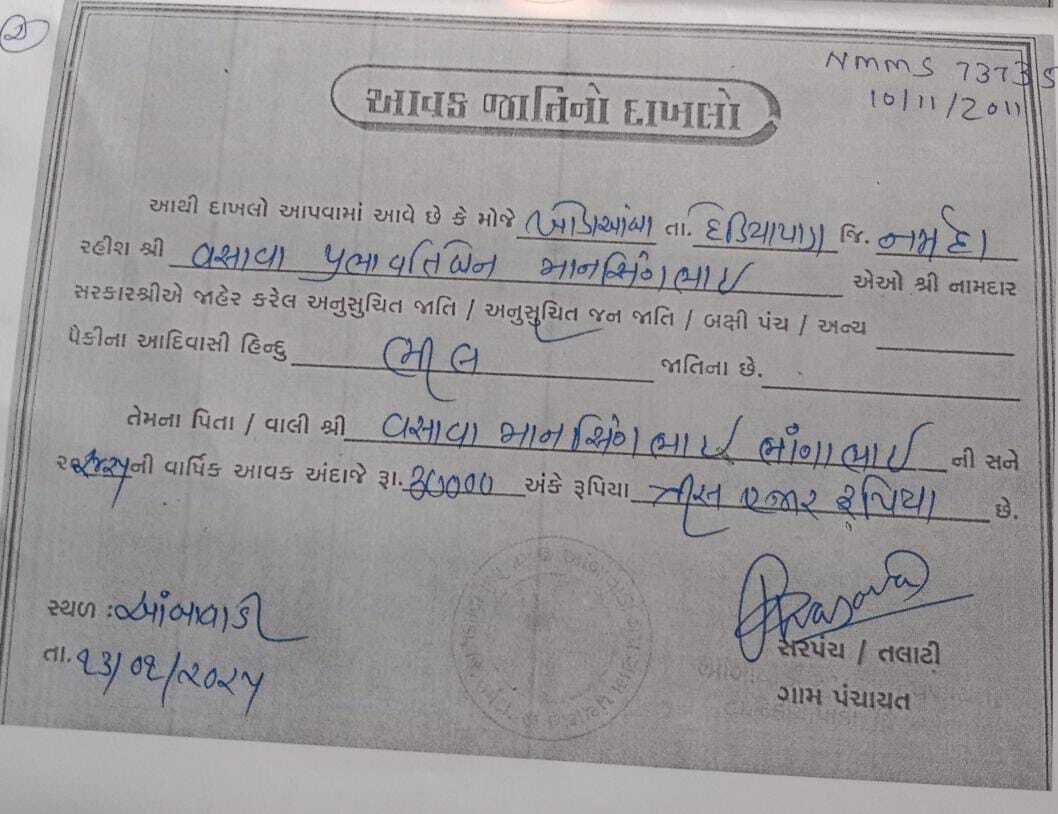 2
NMMS 73735
10/11/2011
આવક જાતિનો દાખલો
આથી દાખલો આપવામાં આવે છે કે મોજે ખોડાઆંબા તા. દેડિયાપાડા જિ. નર્મદા
રહીશ શ્રી વસાવા પ્રભાવતિબેન માનસિંગભાઇ એઓ શ્રી નામદાર
સરકારશ્રીએ જાહેર કરેલ અનુસુચિત જાતિ / અનુસુચિત જન જાતિ / બક્ષી પંચ / અન્ય
પૈકીના આદિવાસી હિન્દુ ભીલ જાતિના છે.
તેમના પિતા / વાલી શ્રી વસાવા માનસિંગભાઇ ભાંગાભાઇ ની સને
ની વાર્ષિક આવક અંદાજે રૂા. 30000 અંકે રૂપિયા ત્રીસ હજાર રૂપિયા છે.
સ્થળ : આંબાવાડી
તા. ૧૩/૦૧/૨૦૨૫
સરપંચ / તલાટી
ગામ પંચાયત